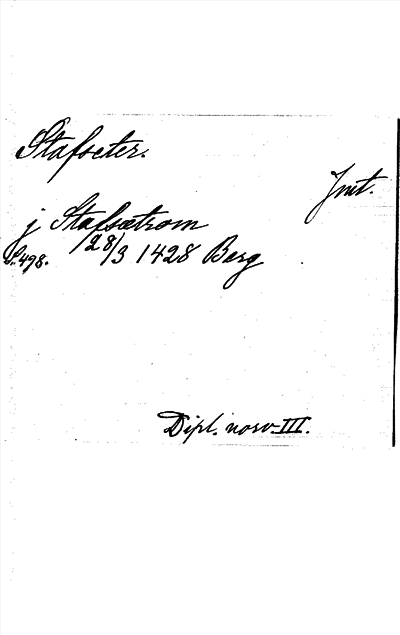 Stafseter.
Jmt.
j Stafsætrom
S. 498. 28/3 1428 Berg
Dipl. norv. III.